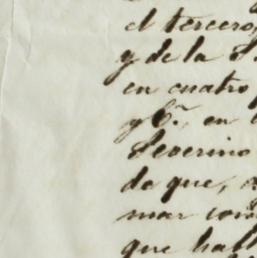 el tercero,
y de la S
en cuatro
y C.ª, en
Severino
do que,
mar com
que hall